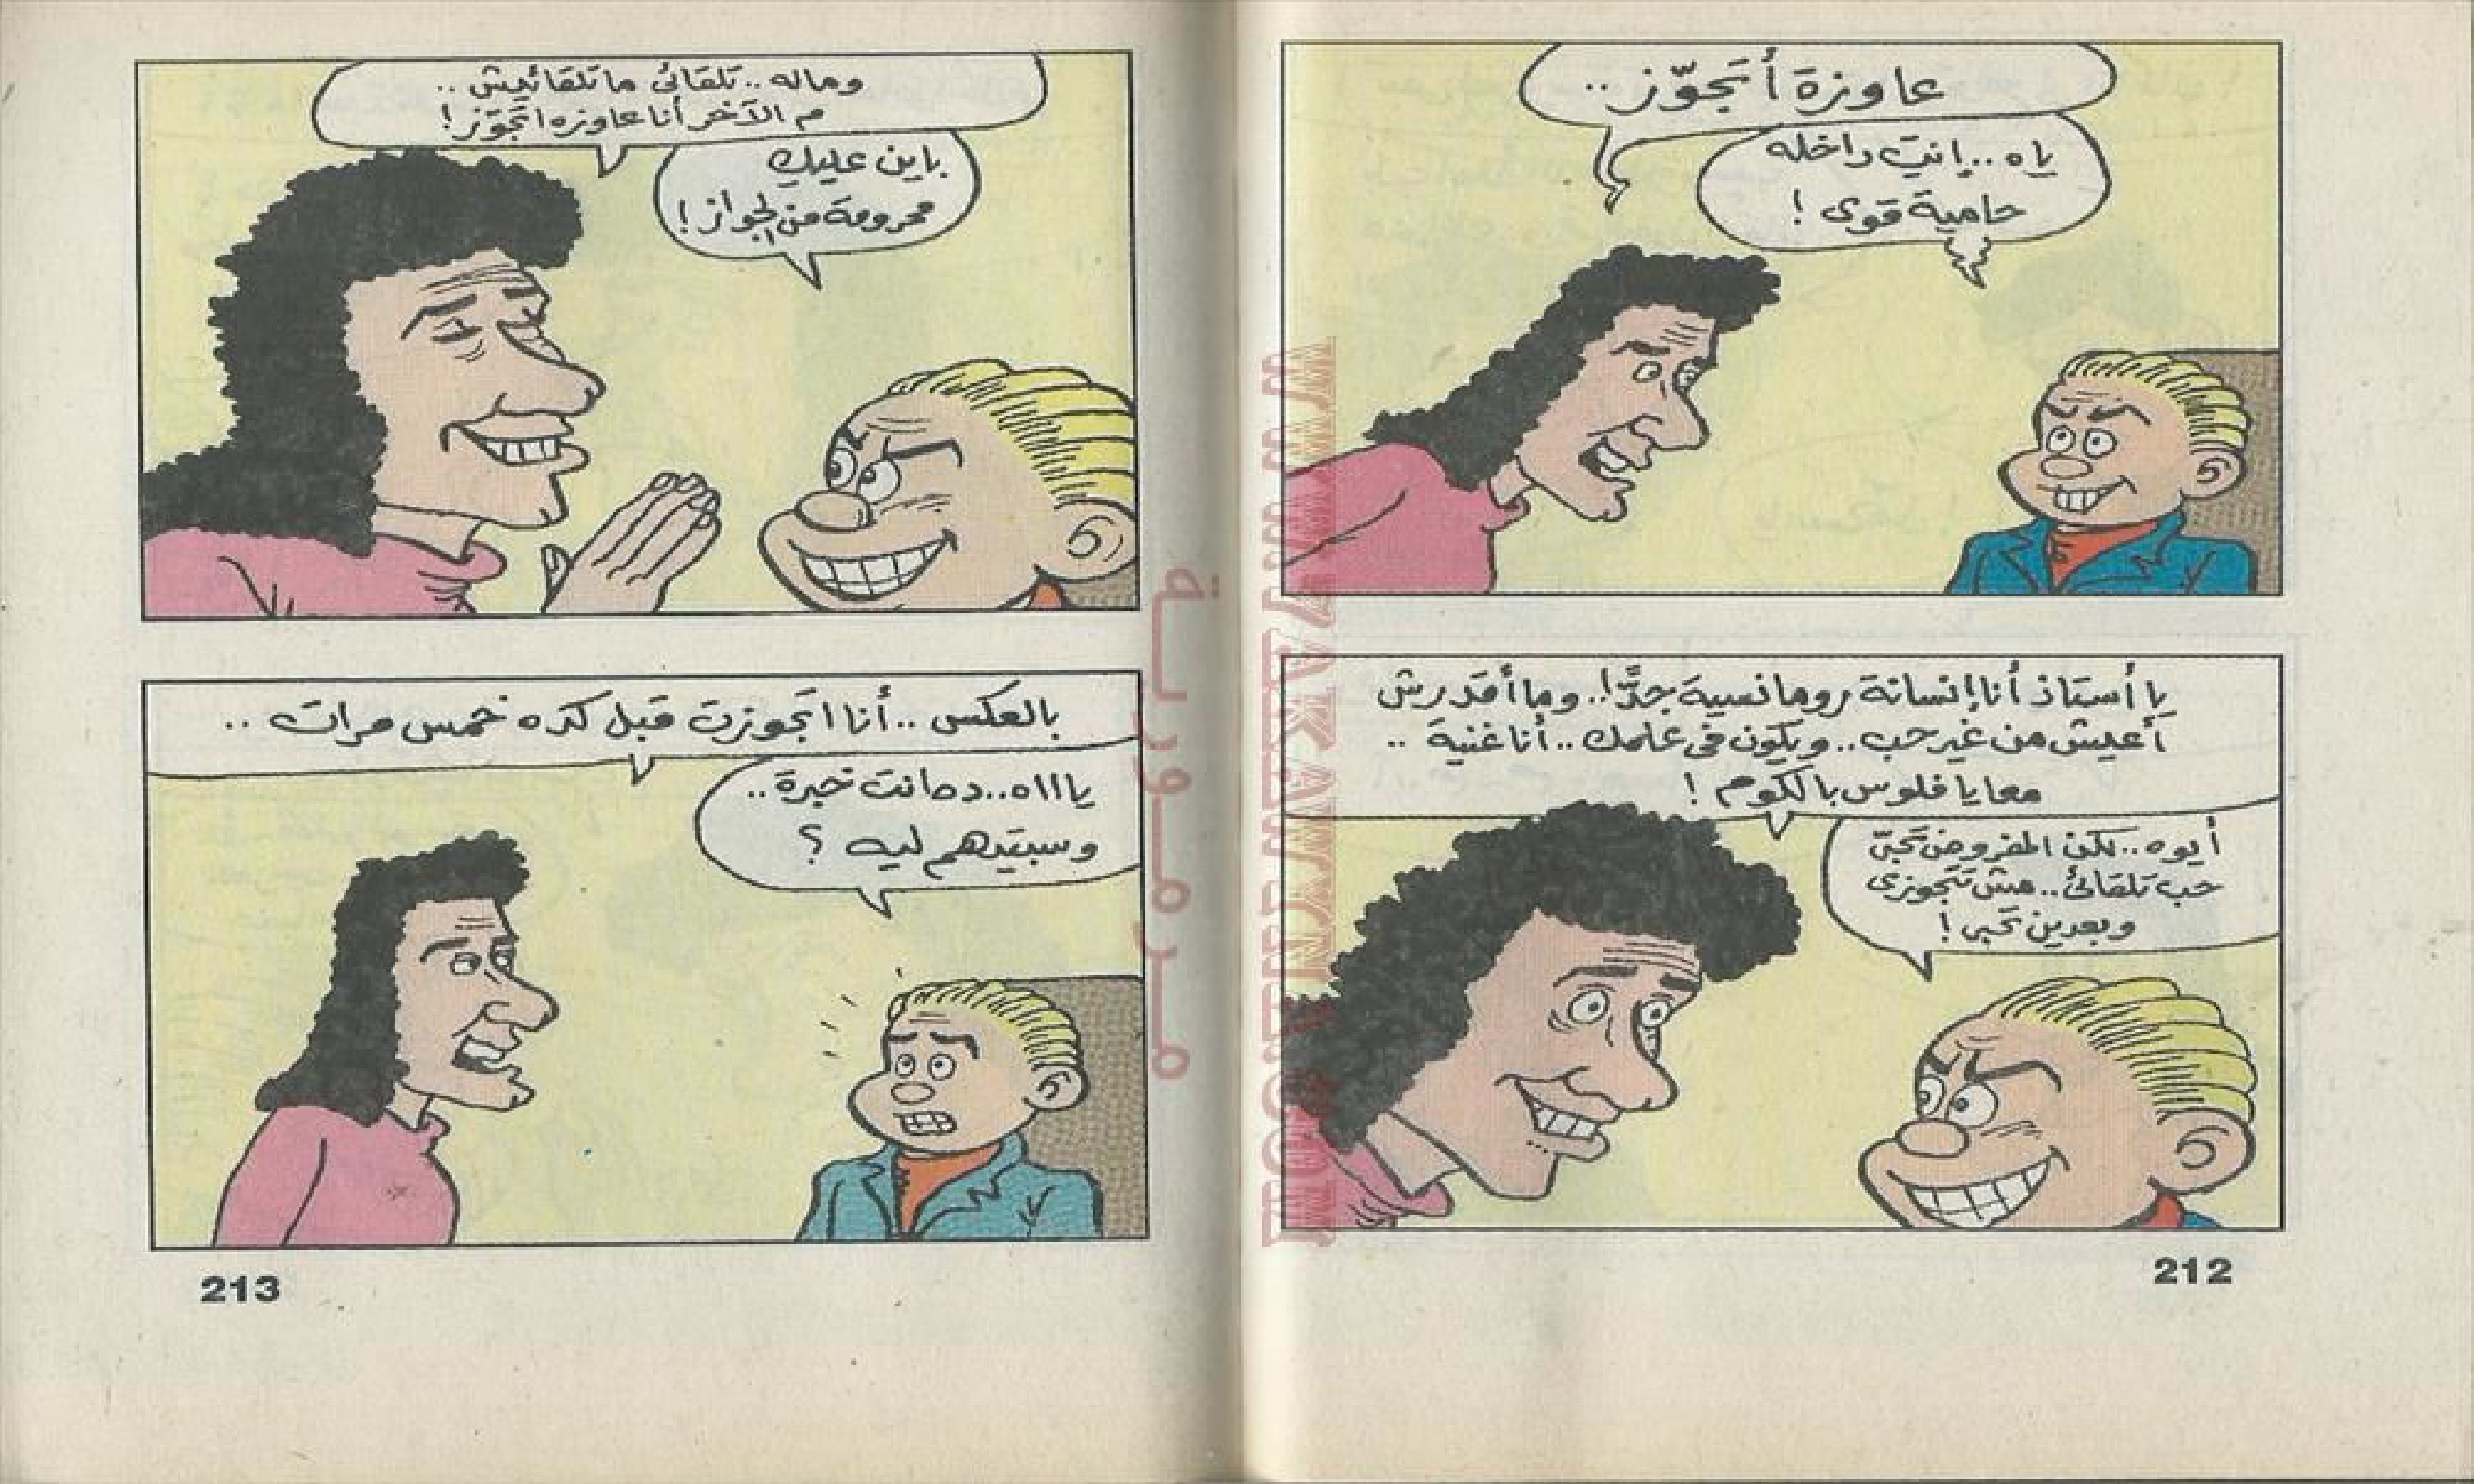 عاوزة أتجوّز..
ياه.. إنتِ داخله
حامية قوى !
يا أستاذ أنا إنسانة رومانسية جدًّا!.. وما أقدرش
أعيش من غير حب.. ويكون فى علمك.. أنا غنية ..
معايا فلوس بالكوم !
أيوه.. لكن المفروض تحبىّ
حب تلقائى.. مش تتجوزى
وبعدين تحبى !
212
وماله.. تلقائى ما تلقائيش ..
م الآخر أنا عاوزه اتجوّز!
باين عليكِ
محرومة من الجواز !
بالعكس .. أنا اتجوزت قبل كده خمس مرات ..
ياااه.. ده انت خبرة ..
وسبتيهم ليه ؟
213
مـرمـوريـة